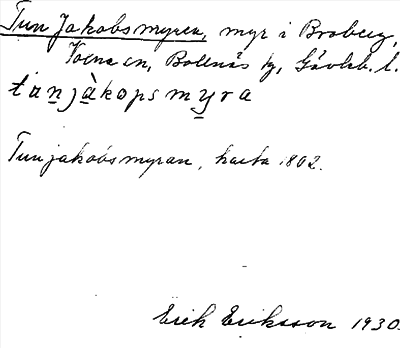 Tun Jakobsmyren, myr i Broberg,
Voxna sn, Bollnäs fg, Gävleb. l.
tanjàkopsmyra
Tunjakobsmyran, karta 1802.
Erik Eriksson 1930.